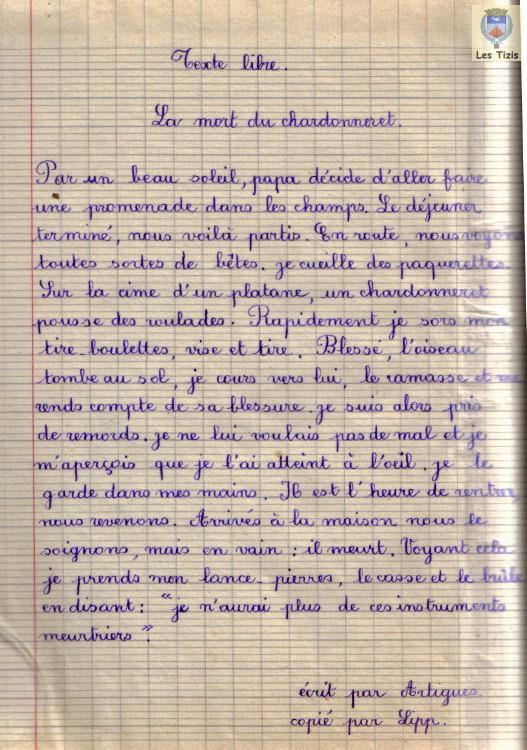 Les Tizis
Texte libre.
La mort du chardonneret.
Par un beau soleil, papa décide d'aller faire
une promenade dans les champs. Le déjeuner
terminé, nous voilà partis. En route, nous voyons
toutes sortes de bêtes. je cueille des paquerettes.
Sur la cime d'un platane, un chardonneret
pousse des roulades. Rapidement je sors mon
tire-boulettes, vise et tire. Blessé, l'oiseau
tombe au sol, je cours vers lui, le ramasse et me
rends compte de sa blessure. je suis alors pris
de remords. je ne lui voulais pas de mal et je
m'aperçois que je l'ai atteint à l'oeil. je le
garde dans mes mains. Il est l'heure de rentrer,
nous revenons. Arrivés à la maison nous le
soignons, mais en vain : il meurt. Voyant cela
je prends mon lance-pierres, le casse et le brûle
en disant : "je n'aurai plus de ces instruments
meurtriers".
écrit par Artigues.
copié par Lipp.